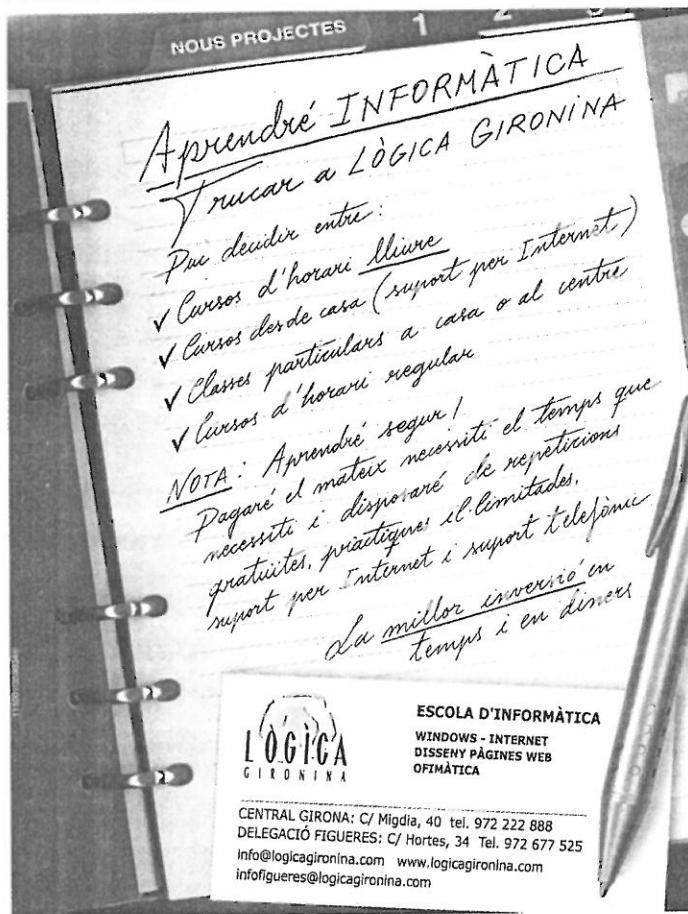 NOUS PROJECTES 1 2 3
Aprendré INFORMÀTICA
Trucar a LÒGICA GIRONINA
Puc decidir entre:
✓ Cursos d'horari lliure
✓ Cursos desde casa (suport per Internet)
✓ Classes particulars a casa o al centre
✓ Cursos d'horari regular
NOTA: Aprendré segur!
Pagaré el mateix necessiti el temps que
necessiti i disposaré de repeticions
gratuïtes, pràctiques il·limitades,
suport per Internet i suport telefònic
La millor inversió en
temps i en diners
LÒGICA
GIRONINA
ESCOLA D'INFORMÀTICA
WINDOWS - INTERNET
DISSENY PÀGINES WEB
OFIMÀTICA
CENTRAL GIRONA: C/ Migdia, 40 tel. 972 222 888
DELEGACIÓ FIGUERES: C/ Hortes, 34 Tel. 972 677 525
info@logicagironina.com www.logicagironina.com
infofigueres@logicagironina.com